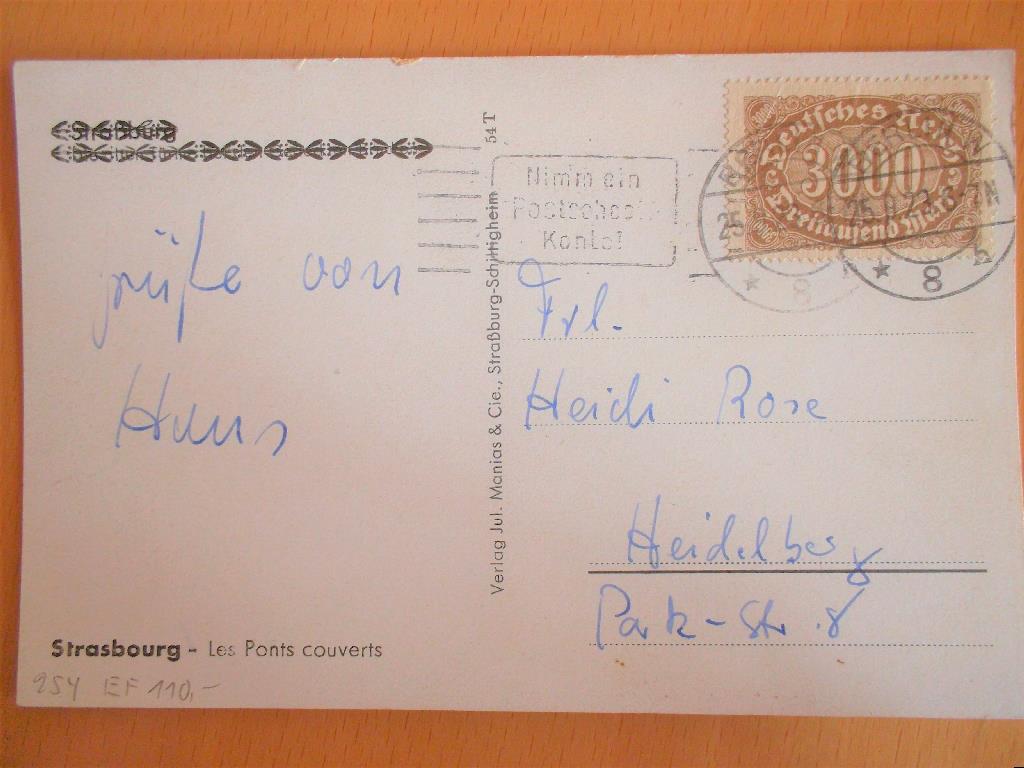 Straßburg
54 T
Nimm ein
Postscheck
Konto!
Deutsches Reich
3000
Dreitausend Mark
25
25.8.23.6-7N
8
8
b
grüße von
Hans
Verlag Jul. Manias & Cie., Straßburg-Schiltigheim
Frl.
Heidi Rose
Heidelberg
Park-Str. 8
Strasbourg - Les Ponts couverts
254 EF 110,-